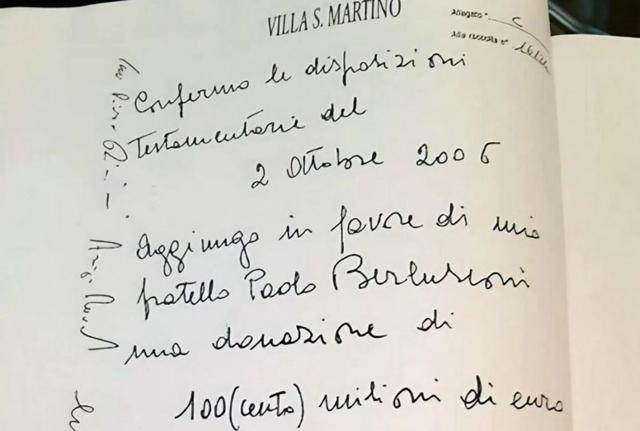 VILLA S. MARTINO
Allegato " C
Alla raccolta n°
Confermo le disposizioni
Testamentarie del
2 Ottobre 2006
Aggiungo in favore di mio
fratello Paolo Berlusconi
una donazione di
100 (cento) milioni di euro